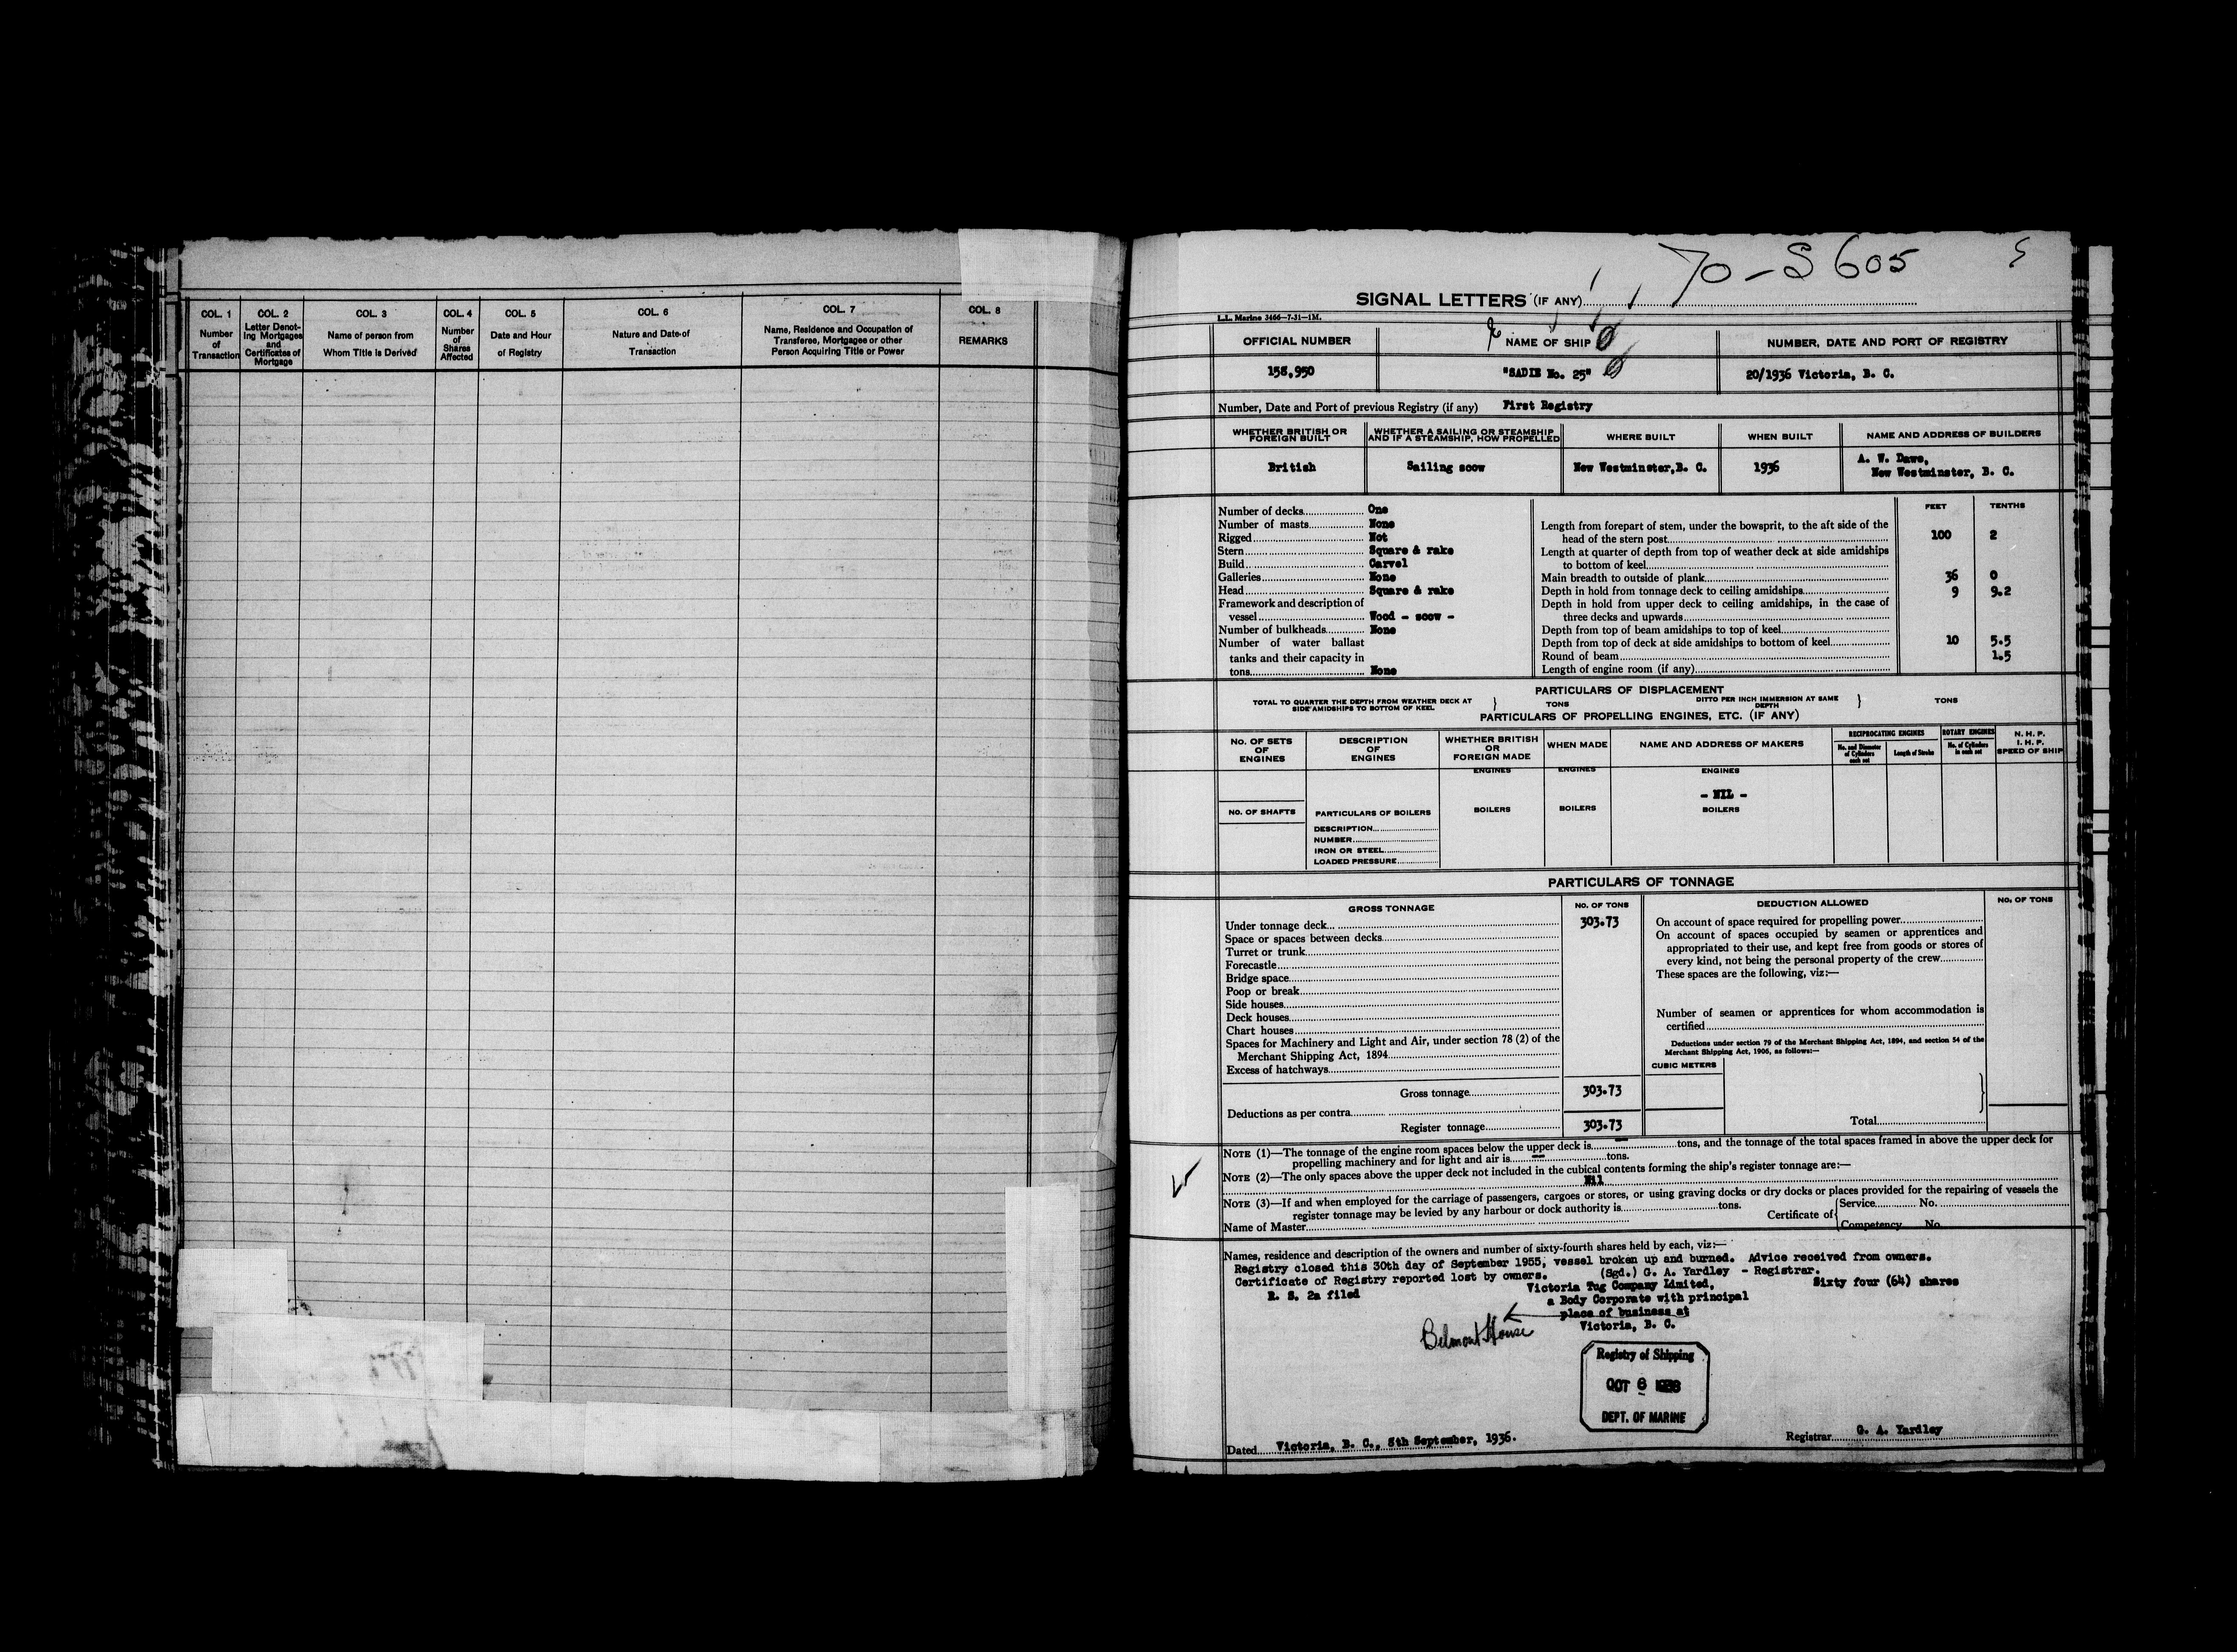 COL. 1
Number
of
Transaction
COL. 2
Letter Denot-
ing Mortgages
and
Certificates of
Mortgage
COL. 3
Name of person from
Whom Title is Derived
COL. 4
Number
of
Shares
Affected
COL. 5
Date and Hour
of Registry
COL. 6
Nature and Date of
Transaction
COL. 7
Name, Residence and Occupation of
Transferee, Mortgagee or other
Person Acquiring Title or Power
COL. 8
REMARKS
70-S 605
SIGNAL LETTERS (IF ANY)
L.L. Marine 3466—7-31—1M.
OFFICIAL NUMBER
NAME OF SHIP
NUMBER, DATE AND PORT OF REGISTRY
158,950
"SADIE No. 25"
20/1936 Victoria, B. C.
Number, Date and Port of previous Registry (if any) First Registry
WHETHER BRITISH OR
FOREIGN BUILT
WHETHER A SAILING OR STEAMSHIP
AND IF A STEAMSHIP, HOW PROPELLED
WHERE BUILT
WHEN BUILT
NAME AND ADDRESS OF BUILDERS
British
Sailing scow
New Westminster, B. C.
1936
A. W. Dawe,
New Westminster, B. C.
Number of decks One
Number of masts None
Rigged Not
Stern Square & rake
Build Carvel
Galleries None
Head Square & rake
Framework and description of
vessel Wood - scow -
Number of bulkheads None
Number of water ballast
tanks and their capacity in
tons None
FEET TENTHS
Length from forepart of stem, under the bowsprit, to the aft side of the
head of the stern post 100 2
Length at quarter of depth from top of weather deck at side amidships
to bottom of keel
Main breadth to outside of plank 36 0
Depth in hold from tonnage deck to ceiling amidships 9 9.2
Depth in hold from upper deck to ceiling amidships, in the case of
three decks and upwards
Depth from top of beam amidships to top of keel
Depth from top of deck at side amidships to bottom of keel 10 5.5
Round of beam 1.5
Length of engine room (if any)
PARTICULARS OF DISPLACEMENT
TOTAL TO QUARTER THE DEPTH FROM WEATHER DECK AT
SIDE AMIDSHIPS TO BOTTOM OF KEEL } TONS
DITTO PER INCH IMMERSION AT SAME
DEPTH } TONS
PARTICULARS OF PROPELLING ENGINES, ETC. (IF ANY)
No. OF SETS
OF
ENGINES
DESCRIPTION
OF
ENGINES
WHETHER BRITISH
OR
FOREIGN MADE
WHEN MADE
NAME AND ADDRESS OF MAKERS
RECIPROCATING ENGINES
No. and Diameter
of Cylinders
each set
Length of Stroke
ROTARY ENGINES
No. of Cylinders
in each set
N. H. P.
I. H. P.
SPEED OF SHIP
ENGINES
ENGINES
ENGINES
- NIL -
No. OF SHAFTS
PARTICULARS OF BOILERS
BOILERS
BOILERS
BOILERS
DESCRIPTION
NUMBER
IRON OR STEEL
LOADED PRESSURE
PARTICULARS OF TONNAGE
GROSS TONNAGE
No. OF TONS
DEDUCTION ALLOWED
No. OF TONS
Under tonnage deck 303.73
Space or spaces between decks
Turret or trunk
Forecastle
Bridge space
Poop or break
Side houses
Deck houses
Chart houses
Spaces for Machinery and Light and Air, under section 78 (2) of the
Merchant Shipping Act, 1894
Excess of hatchways
Gross tonnage 303.73
Deductions as per contra
Register tonnage 303.73
On account of space required for propelling power
On account of spaces occupied by seamen or apprentices and
appropriated to their use, and kept free from goods or stores of
every kind, not being the personal property of the crew
These spaces are the following, viz:—
Number of seamen or apprentices for whom accommodation is
certified
Deductions under section 79 of the Merchant Shipping Act, 1894, and section 54 of the
Merchant Shipping Act, 1906, as follows:—
CUBIC METERS
Total
NOTE (1)—The tonnage of the engine room spaces below the upper deck is — tons, and the tonnage of the total spaces framed in above the upper deck for
propelling machinery and for light and air is — tons.
NOTE (2)—The only spaces above the upper deck not included in the cubical contents forming the ship's register tonnage are:—
Nil
NOTE (3)—If and when employed for the carriage of passengers, cargoes or stores, or using graving docks or dry docks or places provided for the repairing of vessels the
register tonnage may be levied by any harbour or dock authority is tons.
Name of Master
Certificate of { Service No.
Competency No.
Names, residence and description of the owners and number of sixty-fourth shares held by each, viz:—
Registry closed this 30th day of September 1955, vessel broken up and burned. Advice received from owners.
Certificate of Registry reported lost by owners. (Sgd.) G. A. Yardley - Registrar.
R. S. 2a filed
Victoria Tug Company Limited, Sixty four (64) shares
a Body Corporate with principal
place of business at
Belmont House
Victoria, B. C.
Registry of Shipping
OCT 6 1936
DEPT. OF MARINE
Dated Victoria, B. C., 5th September, 1936.
Registrar G. A. Yardley